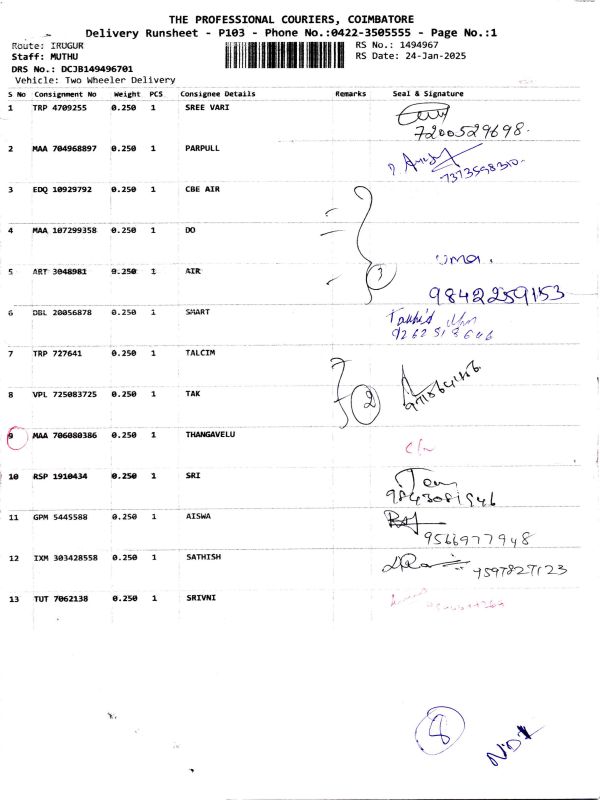 THE PROFESSIONAL COURIERS, COIMBATORE
Delivery Runsheet - P103 - Phone No.:0422-3505555 - Page No.:1
Route: IRUGUR RS No.: 1494967
Staff: MUTHU RS Date: 24-Jan-2025
DRS No.: DCJB149496701
Vehicle: Two Wheeler Delivery
S No Consignment No Weight PCS Consignee Details Remarks Seal & Signature
1 TRP 4709255 0.250 1 SREE VARI
7200529698.
2 MAA 704968897 0.250 1 PARPULL
7373598310.
3 EDQ 10929792 0.250 1 CBE AIR
4 MAA 107299358 0.250 1 DO
uma.
5 ART 3048981 0.250 1 AIR 3
9842259153
6 DBL 20056878 0.250 1 SMART
9262518646
7 TRP 727641 0.250 1 TALCIM
8 VPL 725083725 0.250 1 TAK 2
9 MAA 706080386 0.250 1 THANGAVELU
10 RSP 1910434 0.250 1 SRI
9843081946
11 GPM 5445588 0.250 1 AISWA
9566977948
12 IXM 303428558 0.250 1 SATHISH
9597827123
13 TUT 7062138 0.250 1 SRIVNI
8